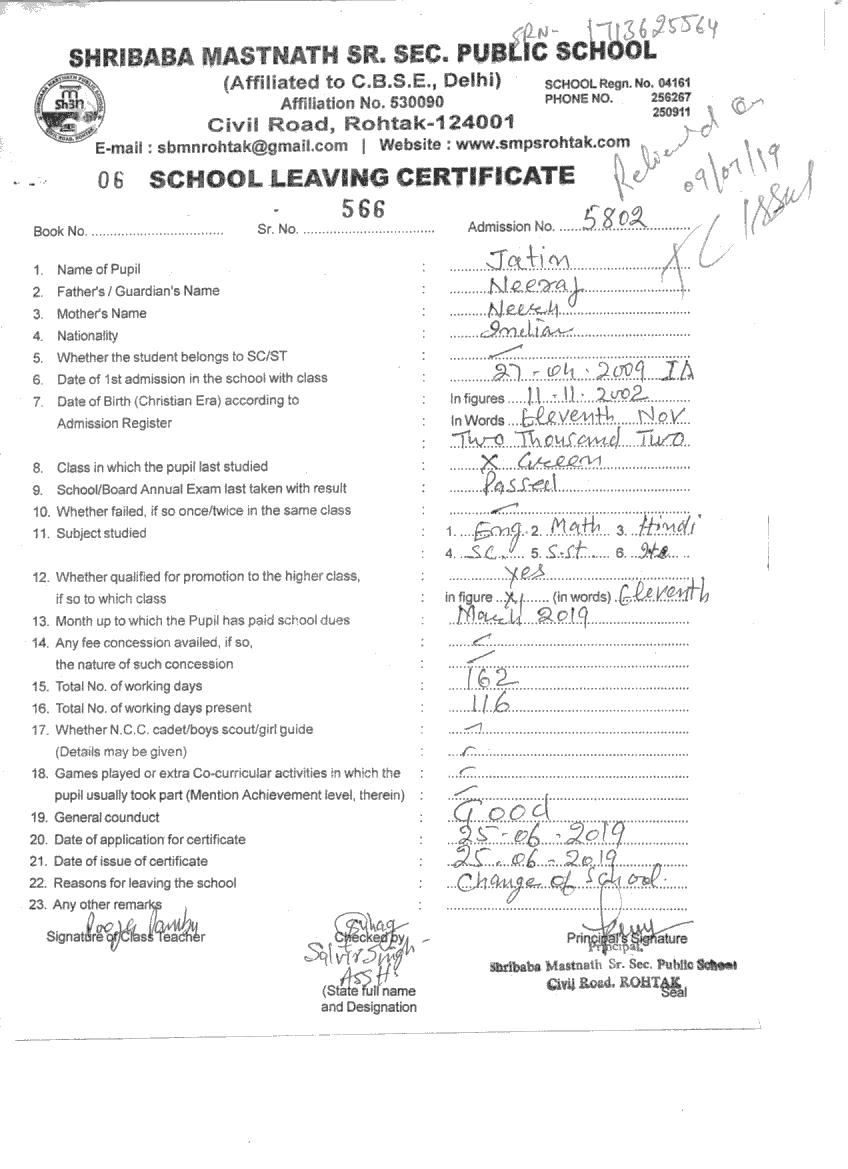 SRN- 1713625564
SHRIBABA MASTNATH SR. SEC. PUBLIC SCHOOL
(Affiliated to C.B.S.E., Delhi)
Affiliation No. 530090
SCHOOL Regn. No. 04161
PHONE NO. 256267
250911
Civil Road, Rohtak-124001
E-mail : sbmnrohtak@gmail.com | Website : www.smpsrohtak.com
Relieved on
09/07/19
06 SCHOOL LEAVING CERTIFICATE
Issued
Book No. Sr. No. 566 Admission No. 5802
1. Name of Pupil : Jatin
2. Father's / Guardian's Name : Neeraj
3. Mother's Name :
4. Nationality : Indian
5. Whether the student belongs to SC/ST :
6. Date of 1st admission in the school with class : 27-04-2009 IA
7. Date of Birth (Christian Era) according to : In figures 11-11-2002
Admission Register : In Words Eleventh Nov
: Two Thousand Two
8. Class in which the pupil last studied : X Green
9. School/Board Annual Exam last taken with result : Passed
10. Whether failed, if so once/twice in the same class :
11. Subject studied : 1. Eng 2. Math 3. Hindi
4. SC. 5. S.st 6.
12. Whether qualified for promotion to the higher class, : yes
if so to which class : in figure XI (in words) Eleventh
13. Month up to which the Pupil has paid school dues : March 2019
14. Any fee concession availed, if so, :
the nature of such concession :
15. Total No. of working days : 162
16. Total No. of working days present : 116
17. Whether N.C.C. cadet/boys scout/girl guide :
(Details may be given) :
18. Games played or extra Co-curricular activities in which the :
pupil usually took part (Mention Achievement level, therein) :
19. General counduct : Good
20. Date of application for certificate : 25-06-2019
21. Date of issue of certificate : 25-06-2019
22. Reasons for leaving the school : Change of School.
23. Any other remarks :
Signature of Class Teacher Checked by Principal's Signature
Principal.
Shribaba Mastnath Sr. Sec. Public School
Civil Road, ROHTAK
Seal
(State full name
and Designation